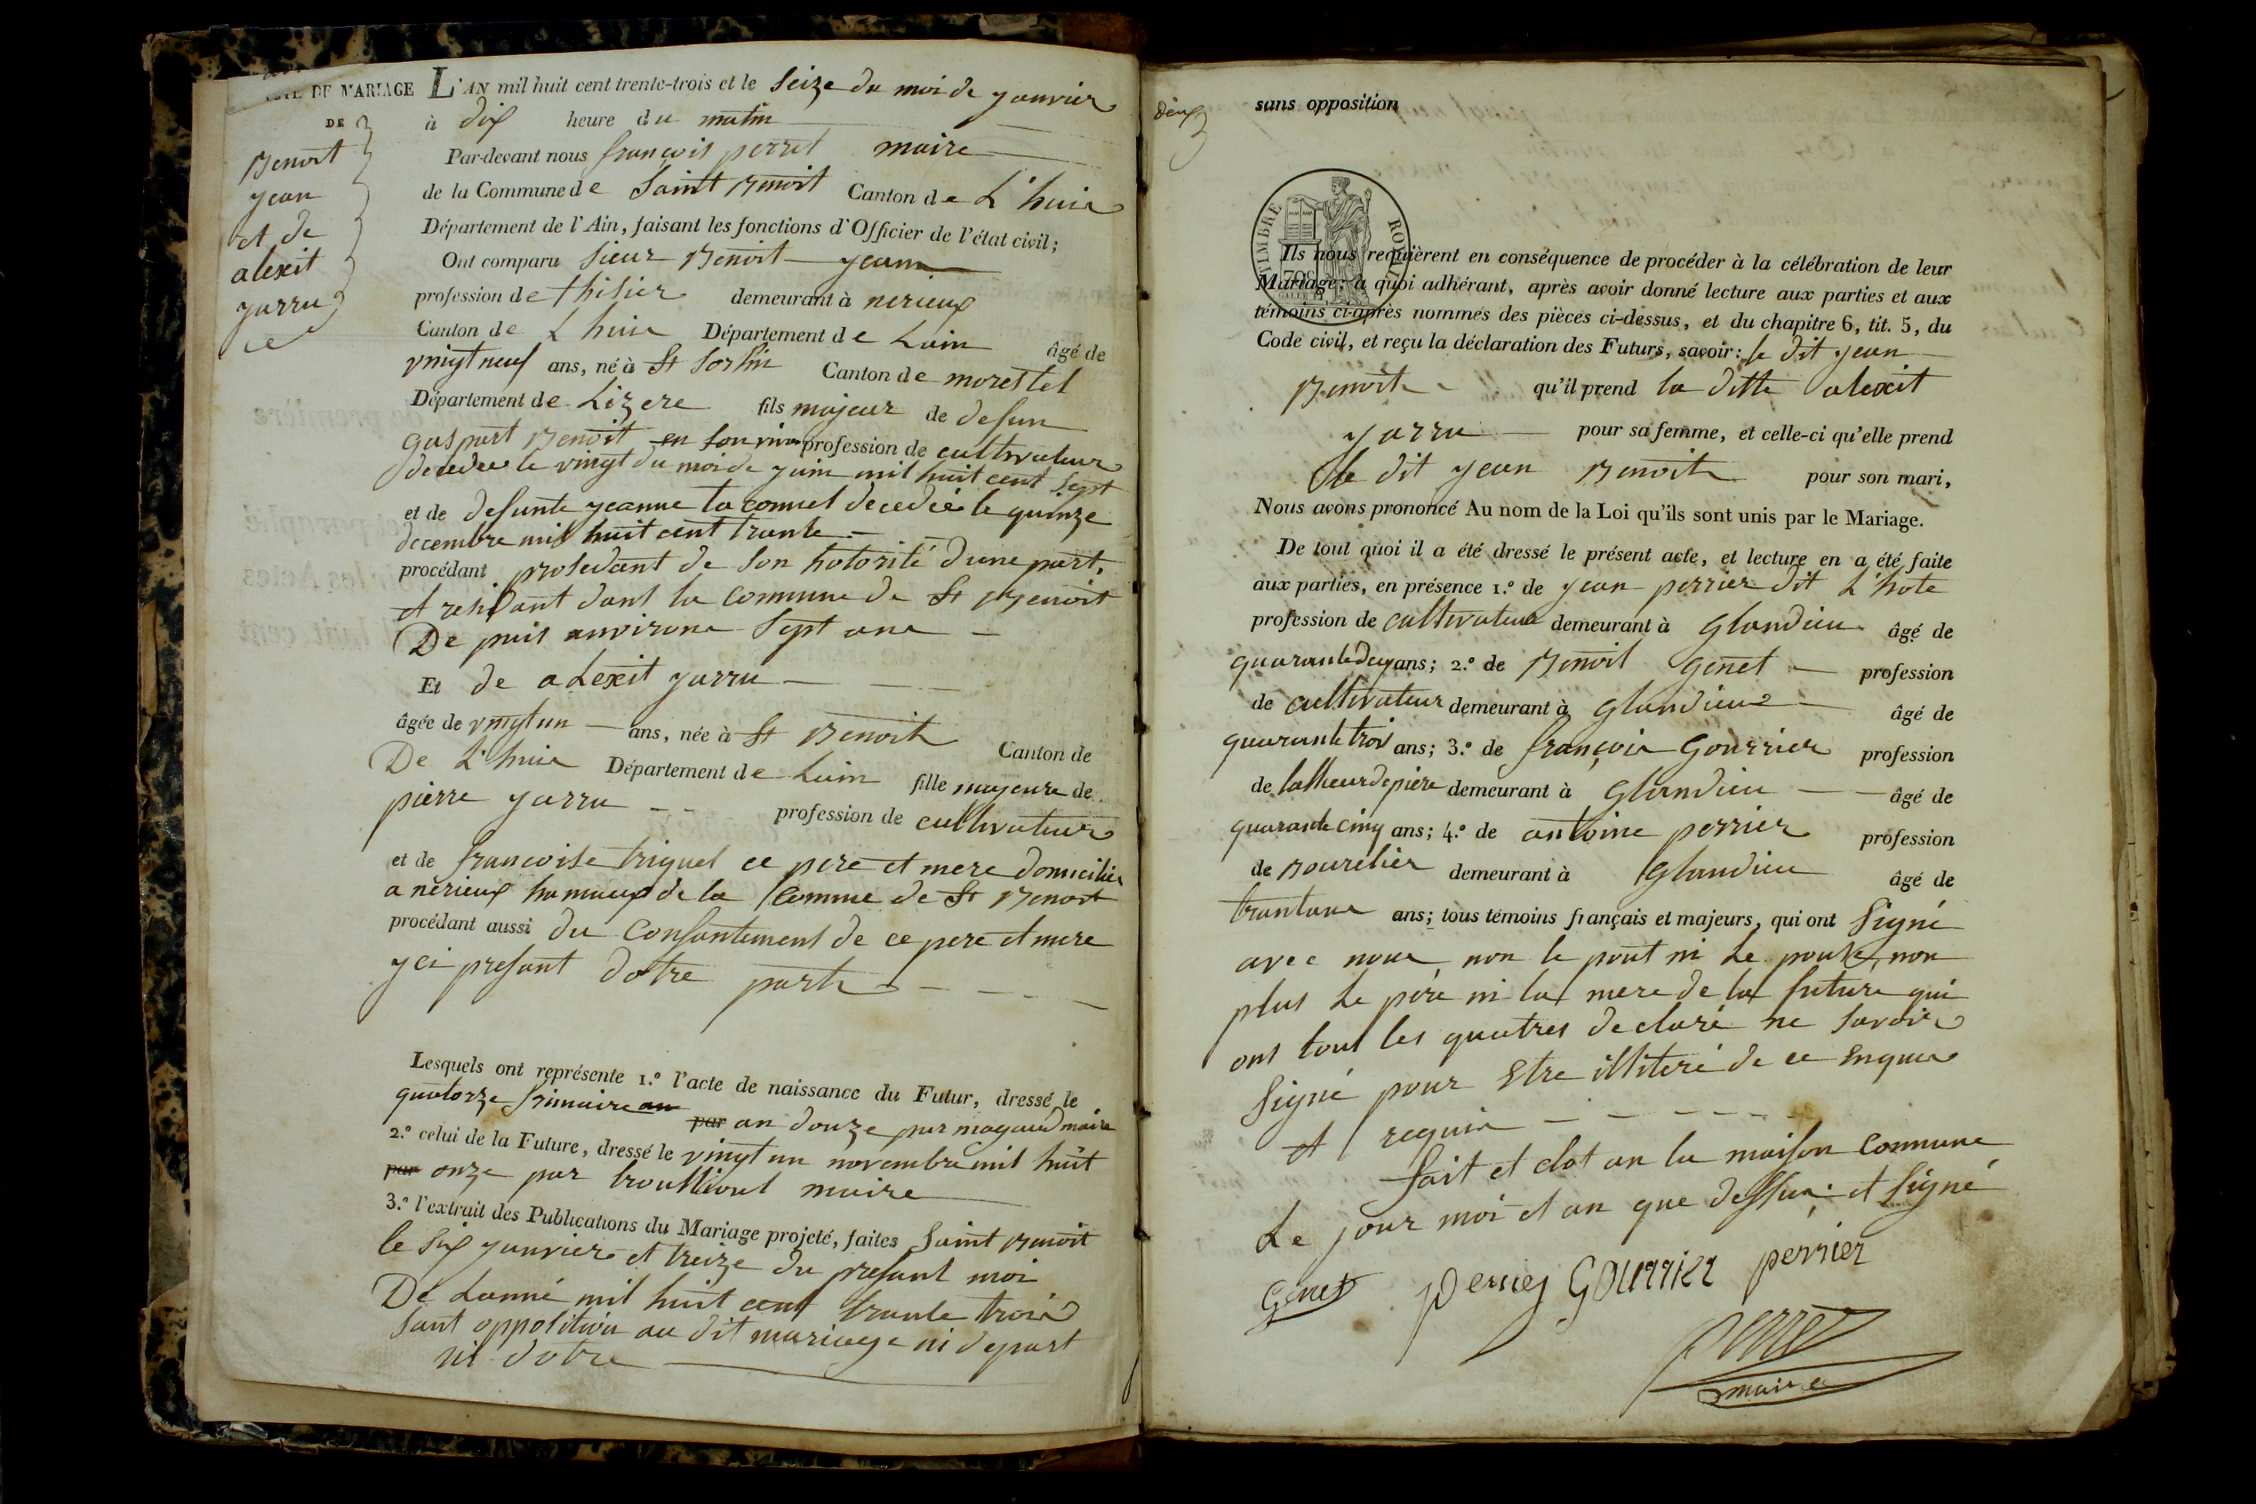 ACTE DE MARIAGE
DE
Benoit
jean
et de
alexit
jarru
L'AN mil huit cent trente-trois et le seize du moi de janvier
à dix heure du matin
Par-devant nous françois perret maire
de la Commune de Saint Benoit Canton de L'huis
Département de l'Ain, faisant les fonctions d'Officier de l'état civil;
Ont comparu sieur Benoit jean
profession de thisier demeurant à nerieux
Canton de L huis Département de Lain âgé de
vingt neuf ans, né à St Sorlin Canton de morestel
Département de Lizere fils majeur de defun
gaspart Benoit en son vivan profession de cultivateur
decedee le vingt du moi de juin mil huit cent sept
et de defunte jeanne decedée le quinze
decembre mil huit cent trante
procédant prosedant de son hotorité d'une part,
et residant dans la commune de St Benoit
De puis anvirons sept ans
Et de alexit jarru
âgée de vingt un ans, née à St Benoit Canton de
De L'huis Département de Lain fille majeure de
pierre jarru profession de cultivateur
et de francoise triguet ce pere et mere domicilies
a nerieux hamaux de la Comme de St Benoit
procédant aussi du consantement de ce pere et mere
yci presant dotre part
Lesquels ont représenté 1.º l'acte de naissance du Futur, dressé le
quatorze frimaire an
par an douze par magaud maire
2.º celui de la Future, dressé le vingt un novembre mil huit
par onze par trouilloud maire
3.º l'extrait des Publications du Mariage projeté, faites Saint Benoit
le six janvier et treize du presant moi
De Lanné mil huit cent trante trois
sant opposition au dit mariage ni depart
ni dotre
deux
sans opposition
TIMBRE ROYAL
Ils nous requièrent en conséquence de procéder à la célébration de leur
Mariage; à quoi adhérant, après avoir donné lecture aux parties et aux
témoins ci-après nommés des pièces ci-dessus, et du chapitre 6, tit. 5, du
Code civil, et reçu la déclaration des Futurs, savoir: le dit jean
Benoit qu'il prend la ditte alexit
jarru pour sa femme, et celle-ci qu'elle prend
le dit jean Benoit pour son mari,
Nous avons prononcé Au nom de la Loi qu'ils sont unis par le Mariage.
De tout quoi il a été dressé le présent acte, et lecture en a été faite
aux parties, en présence 1.º de jean perrier dit L'hote
profession de cultivateur demeurant à glandieu âgé de
quarante deux ans; 2.º de Benoit genet profession
de cultivateur demeurant à glandieu âgé de
quarante troi ans; 3.º de françois gourrier profession
de tallieur de piere demeurant à glandieu âgé de
quarante cinq ans; 4.º de antoine perrier profession
de Bourelier demeurant à glandieu âgé de
ans; tous témoins français et majeurs, qui ont signé
avec nous, non le pout ni le poux, non
plus le père ni la mere de la future qui
ont tout les quatres declaré ne savoir
signé pour Etre illiteré de ce Enquis
et requis
fait et clot an la maison commune
Le jour moi et an que dessus. et signé
Genet perrier Gourrier perrier
perret
maire